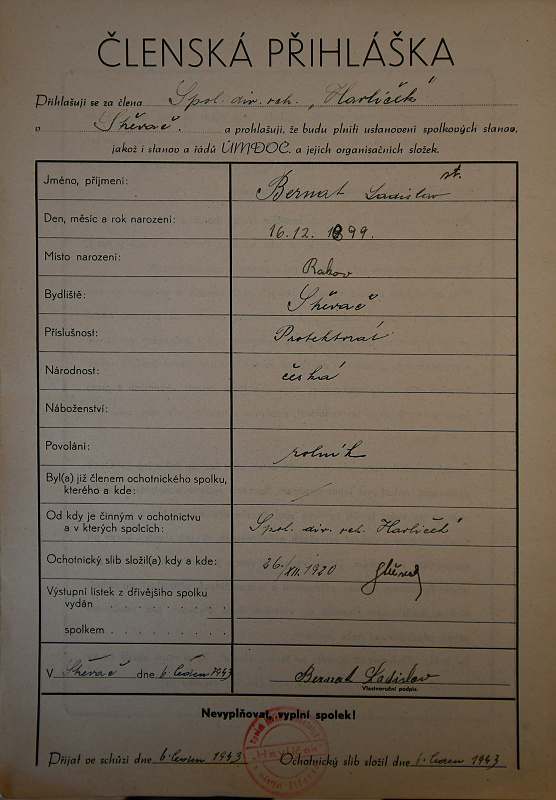 ČLENSKÁ PŘIHLÁŠKA
Přihlašuji se za člena Spol. div. och. „Havlíček“
v a prohlašuji, že budu plniti ustanovení spolkových stanov,
jakož i stanov a řádů ÚMDOC. a jejich organisačních složek.
Jméno, příjmení: Bernat Ladislav st.
Den, měsíc a rok narození: 16.12. 1899.
Místo narození: Rakov
Bydliště:
Příslušnost: Protektorát
Národnost: česká
Náboženství:
Povolání: rolník
Byl(a) již členem ochotnického spolku,
kterého a kde:
Od kdy je činným v ochotnictvu
a v kterých spolcích: Spol. div. och. Havlíček
Ochotnický slib složil(a) kdy a kde: 26./XII. 1920
Výstupní lístek z dřívějšího spolku
vydán . . . . . . . . .
spolkem . . . . . . . . .
V dne 6. leden 1943 Bernat Ladislav
Vlastnoruční podpis.
Nevyplňovat, vyplní spolek!
Přijat ve schůzi dne 6. leden 1943 Ochotnický slib složil dne 6. leden 1943
„Havlíček“